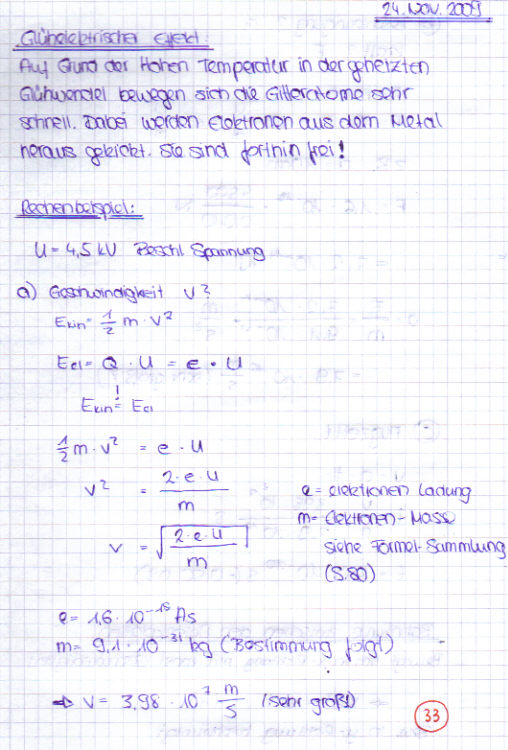 24. NOV. 2009
Glühelektrischer Effekt:
Auf Grund der Hohen Temperatur in der geheizten
Glühwendel bewegen sich die Gitteratome sehr
schnell. Dabei werden Elektronen aus dem Metal
heraus gekickt. Sie sind forthin frei!
Rechenbeispiel:
U = 4,5 kV Beschl Spannung
a) Geschwindigkeit v?
Ekin = 1/2 m · v²
Eel = Q · U = e · U
Ekin =! Eel
1/2 m · v² = e · U
v² = 2 · e · U / m
e = elektronen Ladung
m = Elektronen-Masse
v = √(2 · e · U / m)
siehe Formel-Sammlung
(S.80)
e = 1,6 · 10⁻¹⁹ As
m = 9,1 · 10⁻³¹ kg (Bestimmung folgt)
⇒ v = 3,98 · 10⁷ m/s (sehr groß!)
33